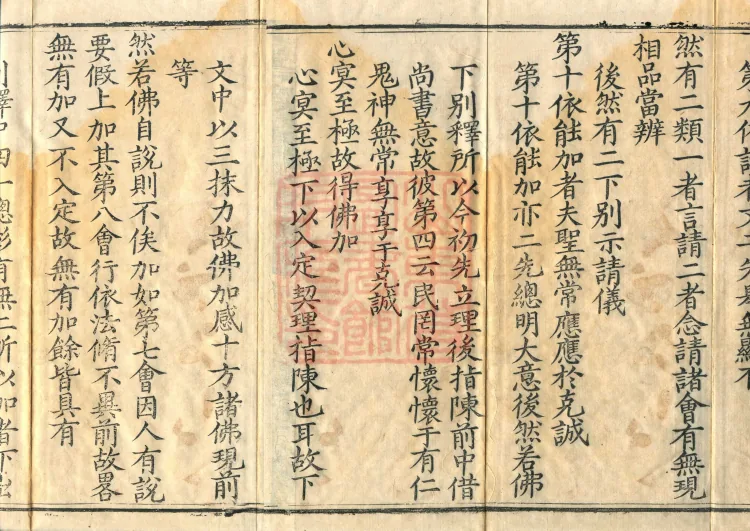 然有二類一者言請二者念請諸會有無現
相品當辨
後然有二下別示請儀
第十依能加者夫聖無常應應於克誠
第十依能加亦二先總明大意後然若佛
下別釋所以今初先立理後指陳前中借
尚書意故彼第四云民罔常懷懷于有仁
鬼神無常享享于克誠
心冥至極故得佛加
心冥至極下以入定契理指陳也耳故下
文中以三抹力故佛加感十方諸佛現前
等
然若佛自說則不俟加如第七會因人有說
要假上加其第八會行依法脩不異前故畧
無有加又不入定故無有加餘皆具有